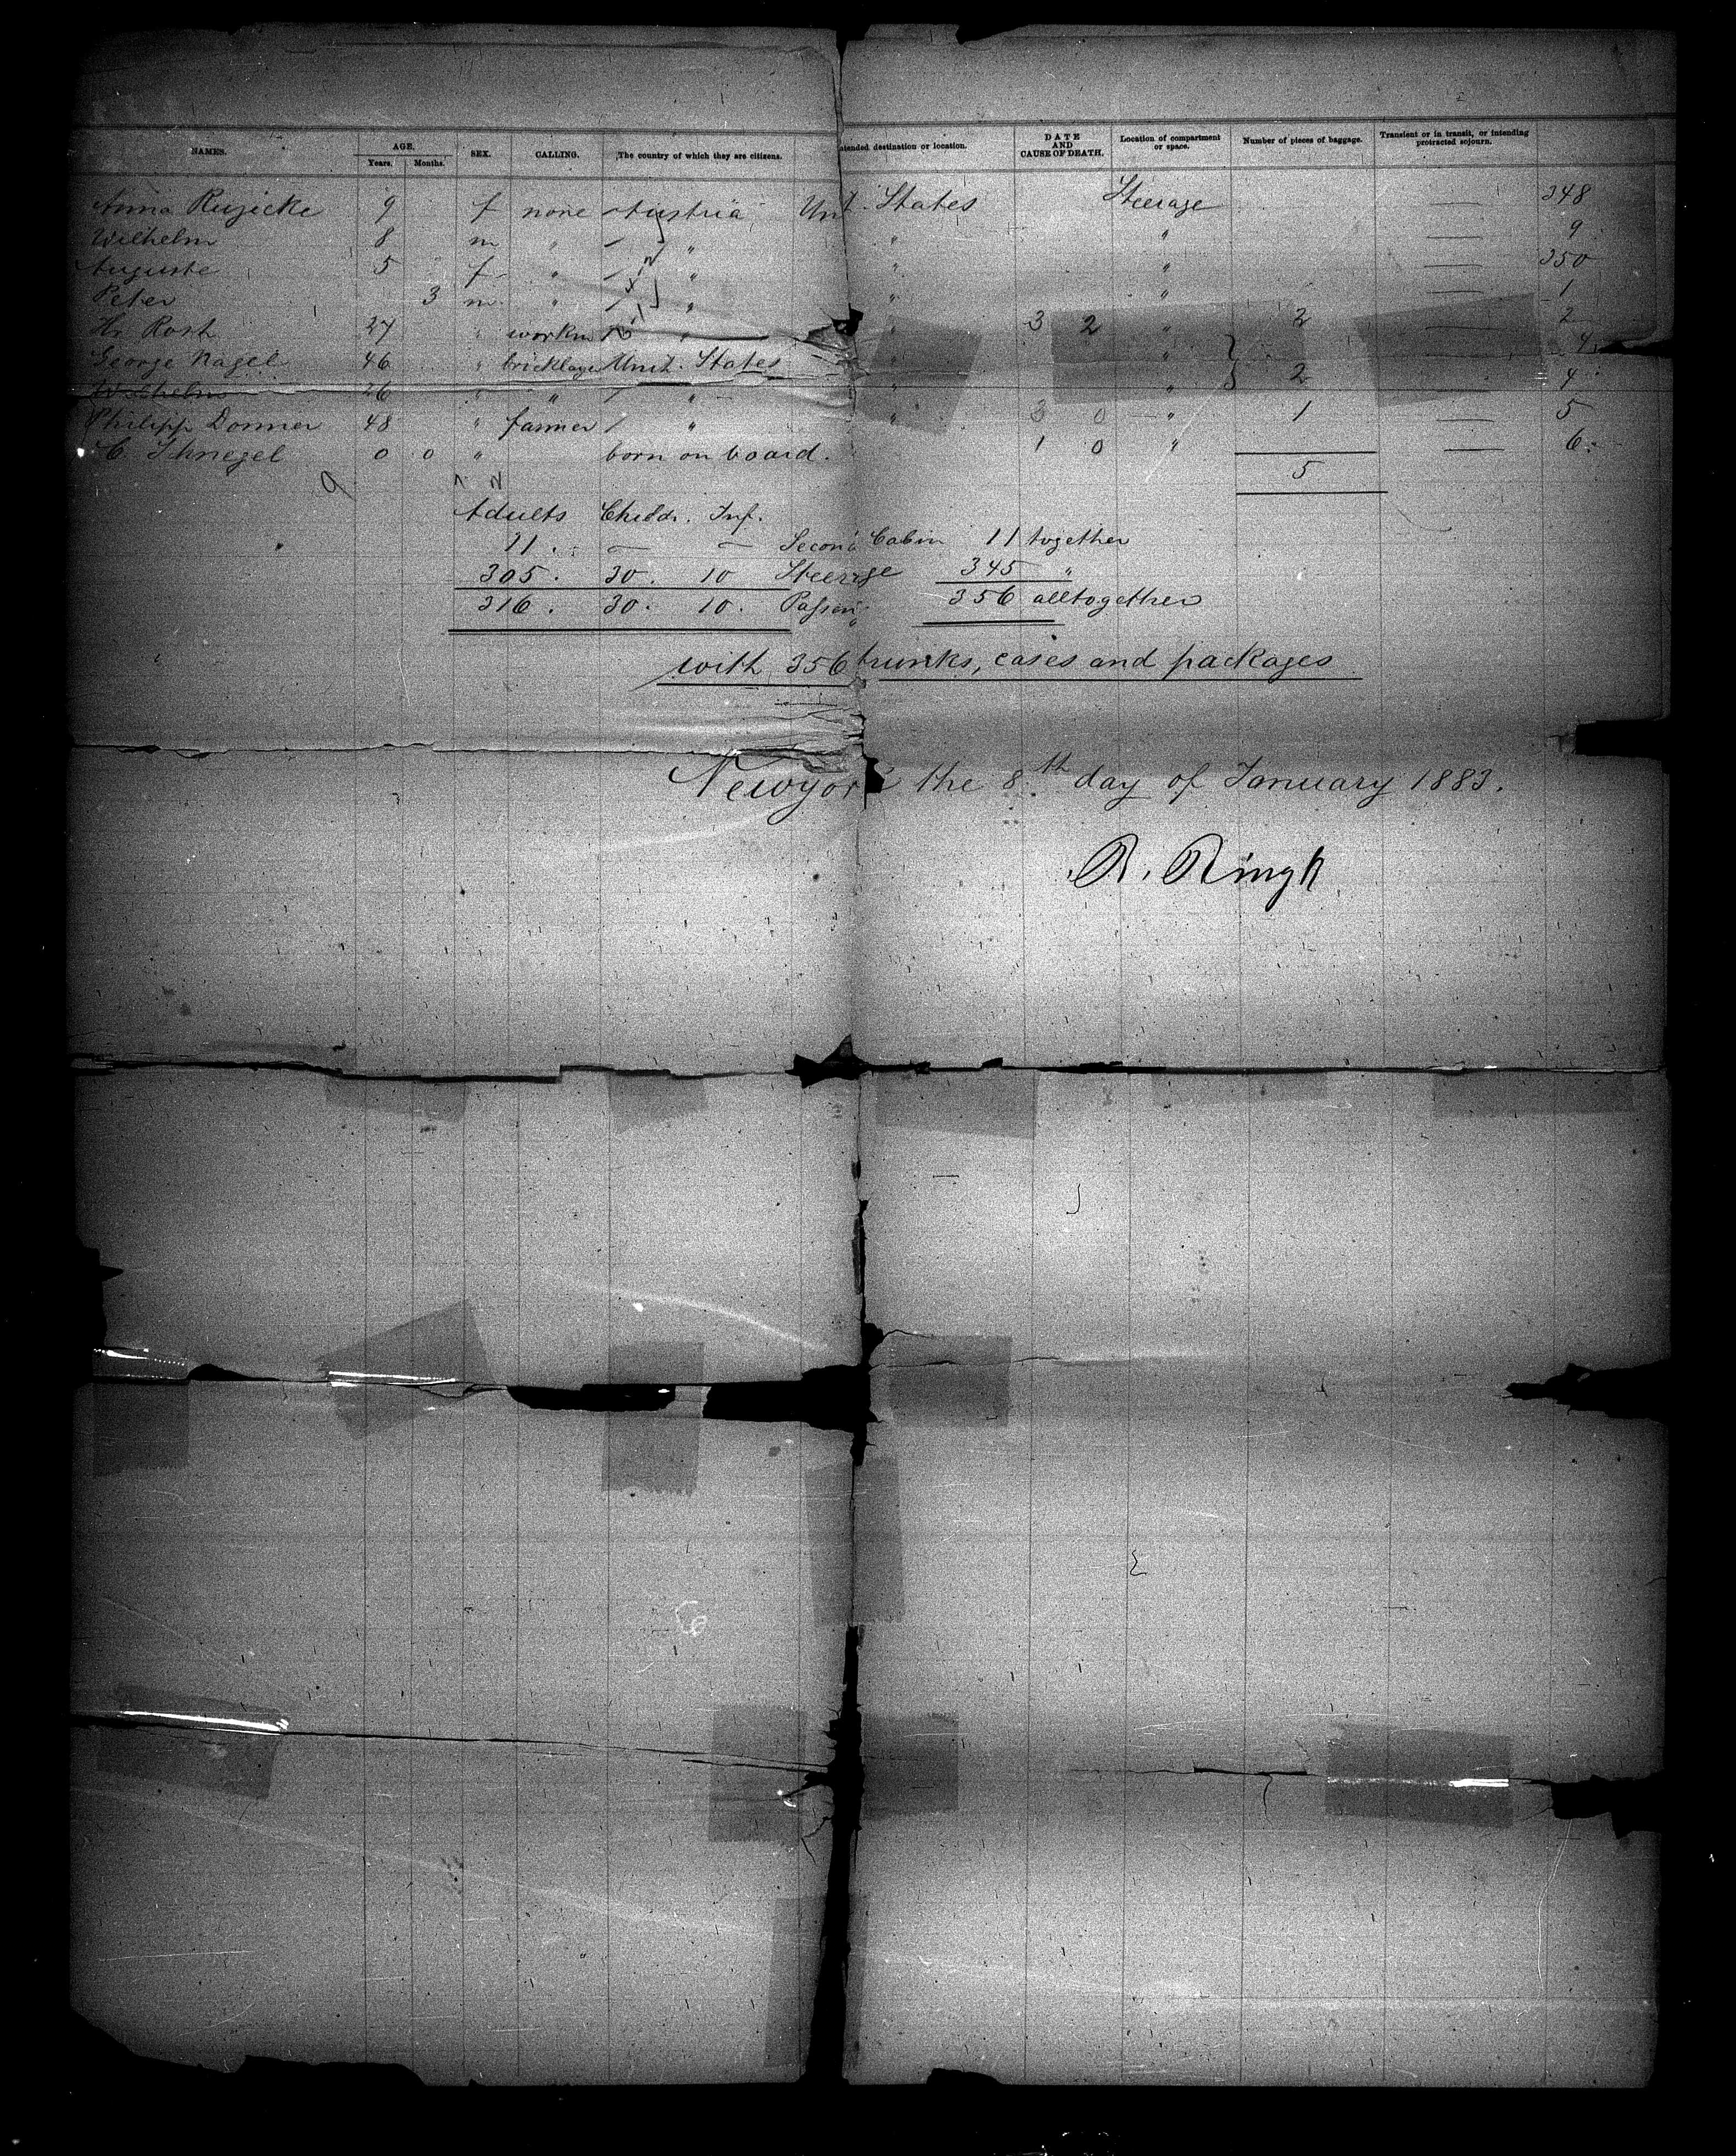 NAMES. AGE. Years. Months. SEX. CALLING. The country of which they are citizens. Intended destination or location. DATE AND CAUSE OF DEATH. Location of compartment or space. Number of pieces of baggage. Transient or in transit, or intending protracted sojourn.
Anna Ruzicke 9 f none Austria Unt. States Steerage — 348
Wilhelm 8 m " " " " — 9
Auguste 5 f " " " " — 350
Peter 3 m " " " " — 1
Hr. Rosh 27 " workm " " 3 2 " 2 — 2
George Nagel 46 " bricklayer Unit. States " " 2 — 4
Wilhelm 26 " " " " " — 4
Philipp Donner 48 " farmer " " 3 0 " 1 — 5
C. Schnegel 0 0 " born on board. 1 0 " — 6.
5
Adults Childr. Inf.
11. — — Second Cabin 11 together
305. 30. 10 Steerage 345 "
316. 30. 10. Passen. 356 alltogether
with 356 trunks, cases and packages
Newyork the 8th day of January 1883.
R. Ringk